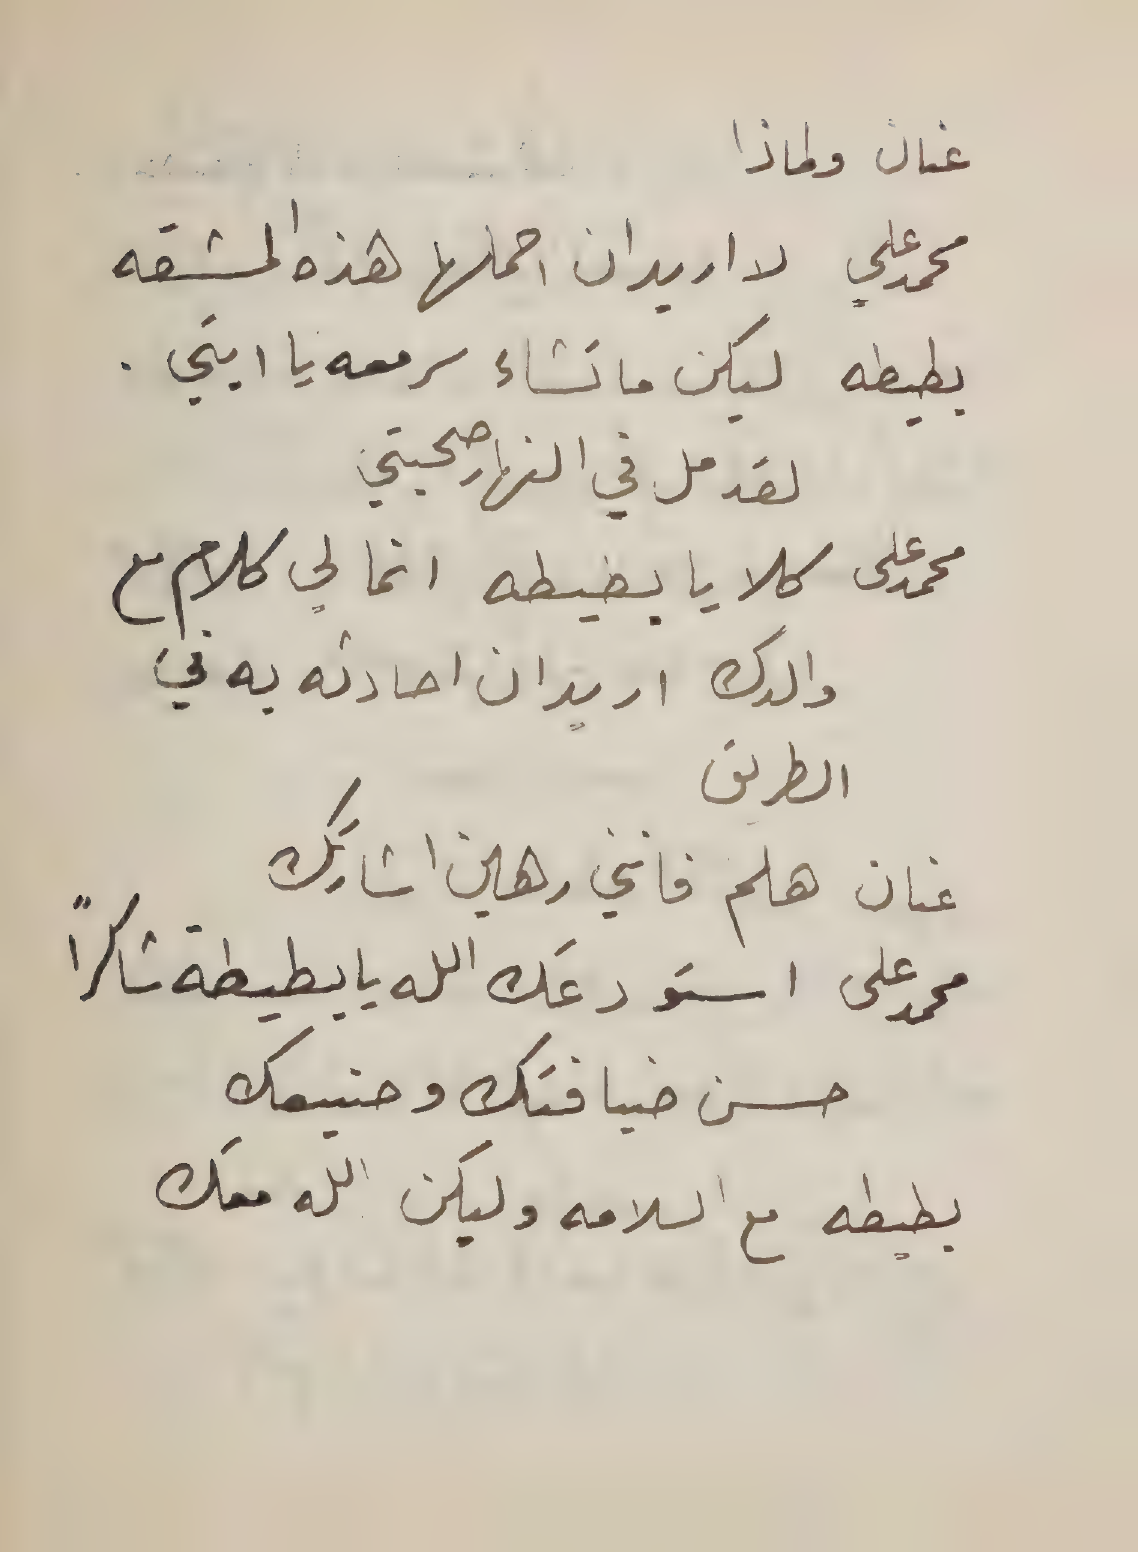 غنان ولماذا
محمد علي لا اريد ان احملها هذه المشقه
بطيطه ليكن ما تشاء سر معه يا ابتي .
لقد مل في النهار صحبتي
محمد على كلا يا بطيطه انما لي كلام مع
والدك اريد ان احادثه به في
الطريق
غنان هلم فانني رهين اشارتك
محمد على استودعك الله يا بطيطة شاكراً
حسن ضيافتك وصنيعك
بطيطه مع السلامه وليكن الله معك